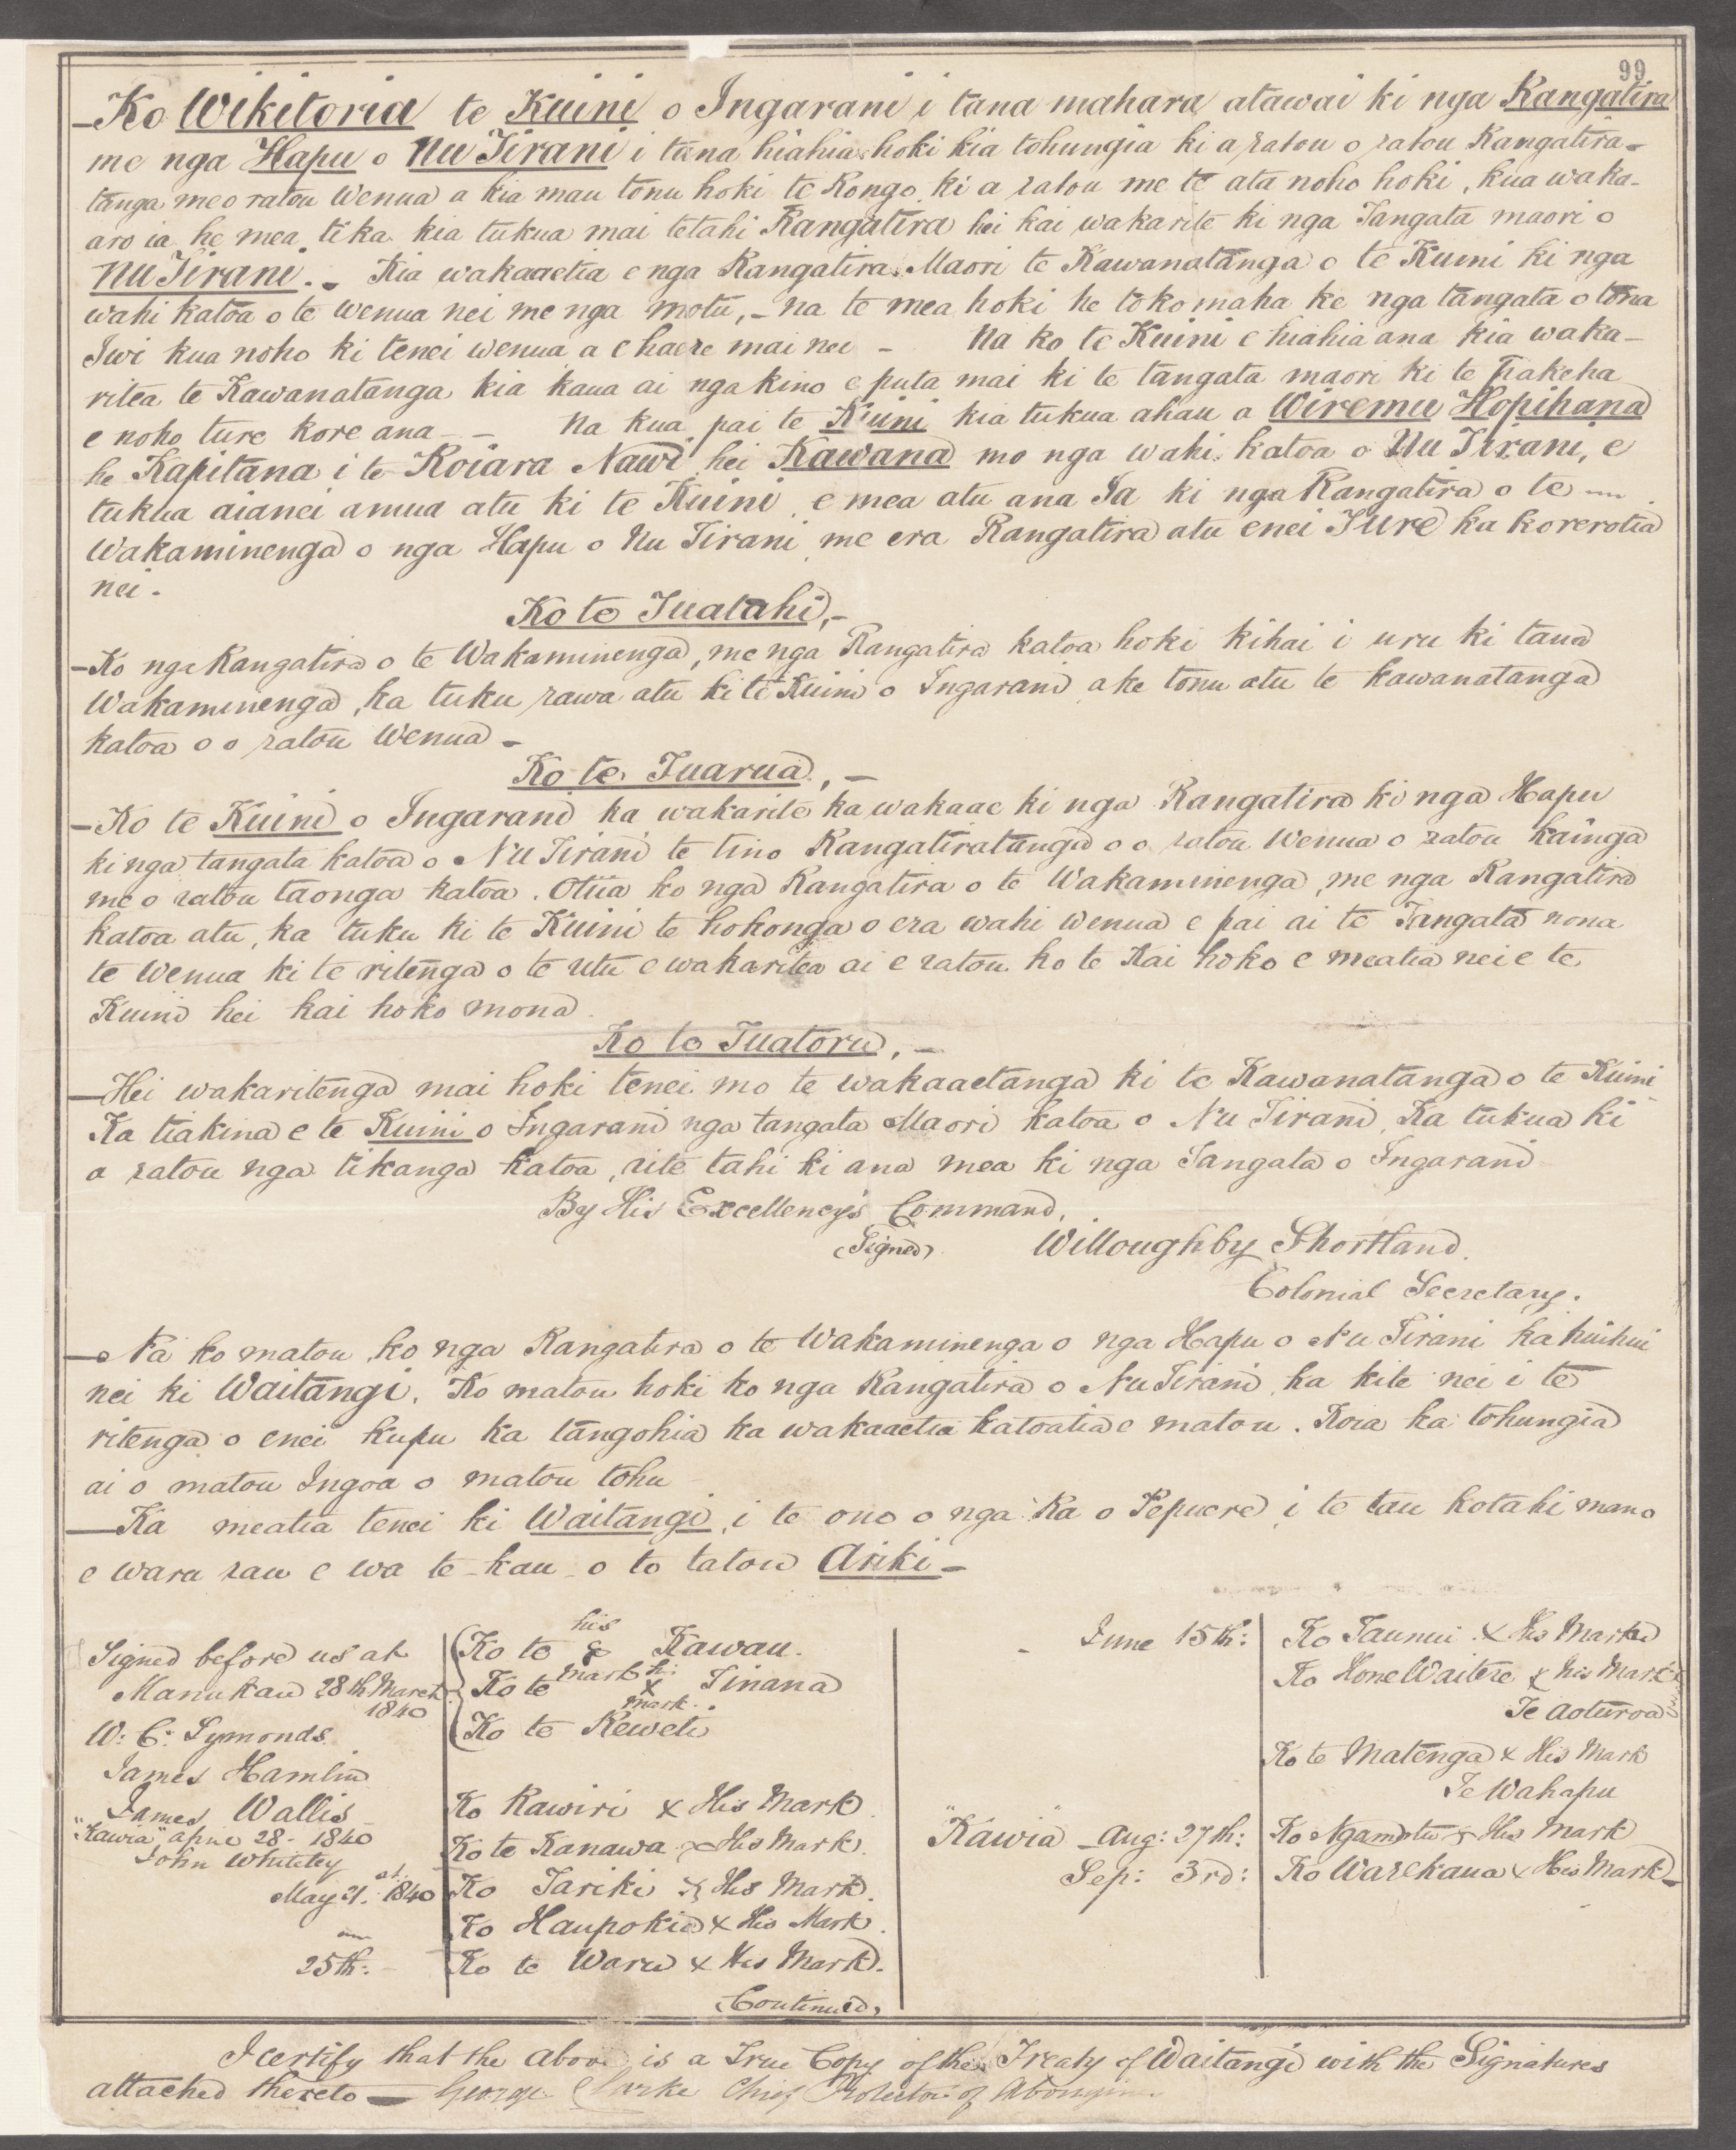 99
– Ko Wikitoria te Kuini o Ingarani i tana mahara atawai ki nga Rangatira
me nga Hapu o Nu Tirani i tana hiahia hoki kia tohungia ki a ratou o ratou Rangatira-
tanga me o ratou Wenua a kia mau tonu hoki te Rongo ki a ratou me te ata noho hoki, kua waka-
aro ia he mea tika kia tukua mai tetahi Rangatira hei kai wakarite ki nga Tangata maori o
Nu Tirani. – Kia wakaaetia e nga Rangatira Maori te Kawanatanga o te Kuini ki nga
wahi katoa o te Wenua nei me nga motu, – na te mea hoki he tokomaha ke nga tangata o tona
Iwi kua noho ki tenei wenua a e haere mai nei – Na ko te Kuini e hiahia ana kia waka-
ritea te Kawanatanga kia kaua ai nga kino e puta mai ki te tangata maori ki te Pakeha
e noho ture kore ana – – Na kua pai te Kuini kia tukua ahau a Wiremu Hopihana
he Kapitana i te Roiara Nawi hei Kawana mo nga wahi katoa o Nu Tirani, e
tukua aianei amua atu ki te Kuini, e mea atu ana Ia ki nga Rangatira o te
Wakaminenga o nga Hapu o Nu Tirani me era Rangatira atu enei Ture ka korerotia
nei.
Ko te Tuatahi, –
– Ko nga Rangatira o te Wakaminenga, me nga Rangatira katoa hoki kihai i uru ki taua
Wakaminenga, ka tuku rawa atu ki te Kuini o Ingarani ake tonu atu te kawanatanga
katoa o o ratou Wenua –
Ko te Tuarua, –
– Ko te Kuini o Ingarani ka wakarite ka wakaae ki nga Rangatira ki nga Hapu
ki nga tangata katoa o Nu Tirani te tino Rangatiratanga o o ratou Wenua o ratou kainga
me o ratou taonga katoa. Otiia ko nga Rangatira o te Wakaminenga, me nga Rangatira
katoa atu, ka tuku ki te Kuini te hokonga o era wahi wenua e pai ai te Tangata nona
te Wenua ki te ritenga o te utu e wakaritea ai e ratou ko te Kai hoko e meatia nei e te
Kuini hei kai hoko mona.
Ko te Tuatoru, –
– Hei wakaritenga mai hoki tenei mo te wakaaetanga ki te Kawanatanga o te Kuini
Ka tiakina e te Kuini o Ingarani nga tangata Maori katoa o Nu Tirani, Ka tukua ki
a ratou nga tikanga katoa, rite tahi ki ana mea ki nga Tangata o Ingarani
By His Excellency's Command,
(Signed) Willoughby Shortland.
Colonial Secretary.
– Na ko matou, ko nga Rangatira o te Wakaminenga o nga Hapu o Nu Tirani ka huihui
nei ki Waitangi. Ko matou hoki ko nga Rangatira o Nu Tirani, ka kite nei i te
ritenga o enei kupu ka tangohia ka wakaaetia katoatia e matou. Koia ka tohungia
ai o matou Ingoa o matou tohu
– Ka meatia tenei ki Waitangi, i te ono o nga Ra o Pepuere, i te tau kotahi mano
e waru rau e wa te kau o to tatou Ariki –
Signed before us at
Manukau 28th March
1840
W. C. Symonds
James Hamlin
James Wallis
"Kawia" April 28 – 1840
John Whiteley
May 21st. 1840
25th: –
his
Ko te Kawau.
mark h:
Ko te x Tinana
mark.
Ko te Reweti
Ko Rawiri x His Mark
Ko te Kanawa x His Mark.
Ko Tariki x His Mark.
Ko Haupokia x His Mark.
Ko te Waru x His Mark.
Continued,
– June 15th:
"Kawia" – Aug: 27th:
Sep: 3rd:
Ko Taunui x His Mark
Ko Hone Waitere x his Mark
Te Aoturoa
Ko te Matenga x His Mark
Te Wahapu
Ko Ngamotu x His Mark
Ko Warekaua x His Mark –
I certify that the above is a True Copy of the Treaty of Waitangi with the Signatures
attached thereto — George Clarke Chief Protector of Aborigines